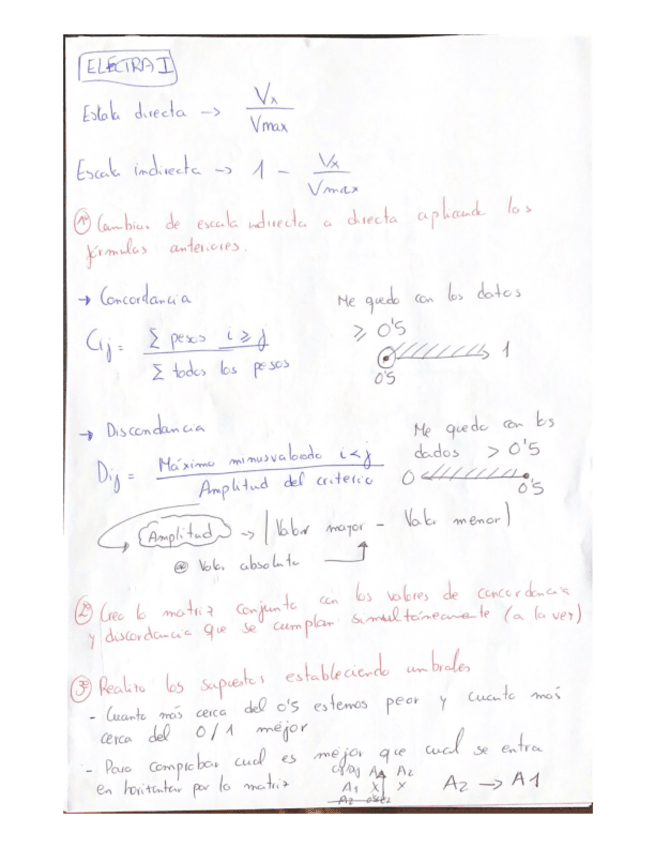 ELECTRA I
Escala directa → Vx / Vmax
Escala indirecta → 1 - Vx / Vmax
1º Cambiar de escala indirecta a directa aplicando las
fórmulas anteriores.
→ Concordancia
Me quedo con los datos
≥ 0'5
Cij = Σ pesos i ≥ j / Σ todos los pesos
0'5 1
→ Discondancia
Me quedo con los
dados > 0'5
Dij = Máximo minusvalorado i<j / Amplitud del criterio
0 0'5
Amplitud → | Valor mayor - Valor menor |
Valor absoluto
2º Creo la matriz conjunta con los valores de concordancia
y discordancia que se cumplan simultáneamente (a la vez)
3º Realizo los supuestos estableciendo umbrales
- Cuanto más cerca del 0'5 estemos peor y cuanto más
cerca del 0/1 mejor
- Para comprobar cual es mejor que cual se entra
en horizontal por la matriz
A1 A2
A1 X X
A2
A2 → A1